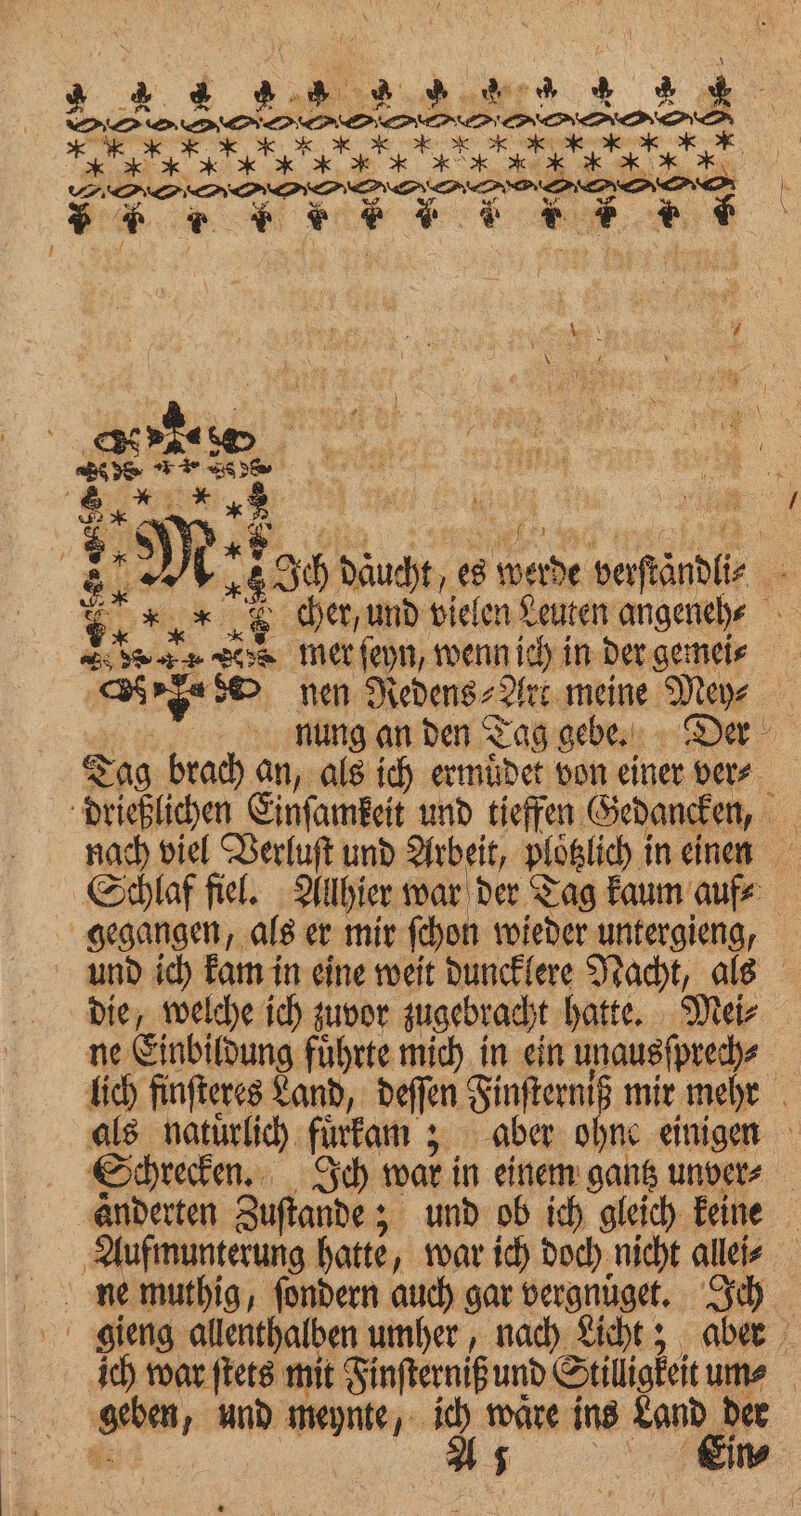 MIch daͤucht, es werde verſtaͤndli⸗
cher, und vielen Leuten angeneh⸗
mer ſeyn, wenn ich in der gemei⸗
nen Redens⸗Art meine Mey⸗
nung an den Tag gebe. Der
Tag brach an, als ich ermuͤdet von einer ver⸗
drießlichen Einſamkeit und tieffen Gedancken,
nach viel Verluſt und Arbeit, ploͤtzlich in einen
Schlaf fiel. Allhier war der Tag kaum auf⸗
gegangen, als er mir ſchon wieder untergieng,
und ich kam in eine weit duncklere Nacht, als
die, welche ich zuvor zugebracht hatte. Mei⸗
ne Einbildung fuͤhrte mich in ein unausſprech⸗
lich finſteres Land, deſſen Finſterniß mir mehr
als natuͤrlich fuͤrkam; aber ohne einigen
Schrecken. Ich war in einem gantz unver⸗
aͤnderten Zuſtande; und ob ich gleich keine
Aufmunterung hatte, war ich doch nicht allei⸗
ne muthig, ſondern auch gar vergnuͤget. Ich
gieng allenthalben umher, nach Licht; aber
ich war ſtets mit Finſterniß und Stilligkeit um⸗
geben, und meynte, ich waͤre ins Land der
A 5 Ein⸗